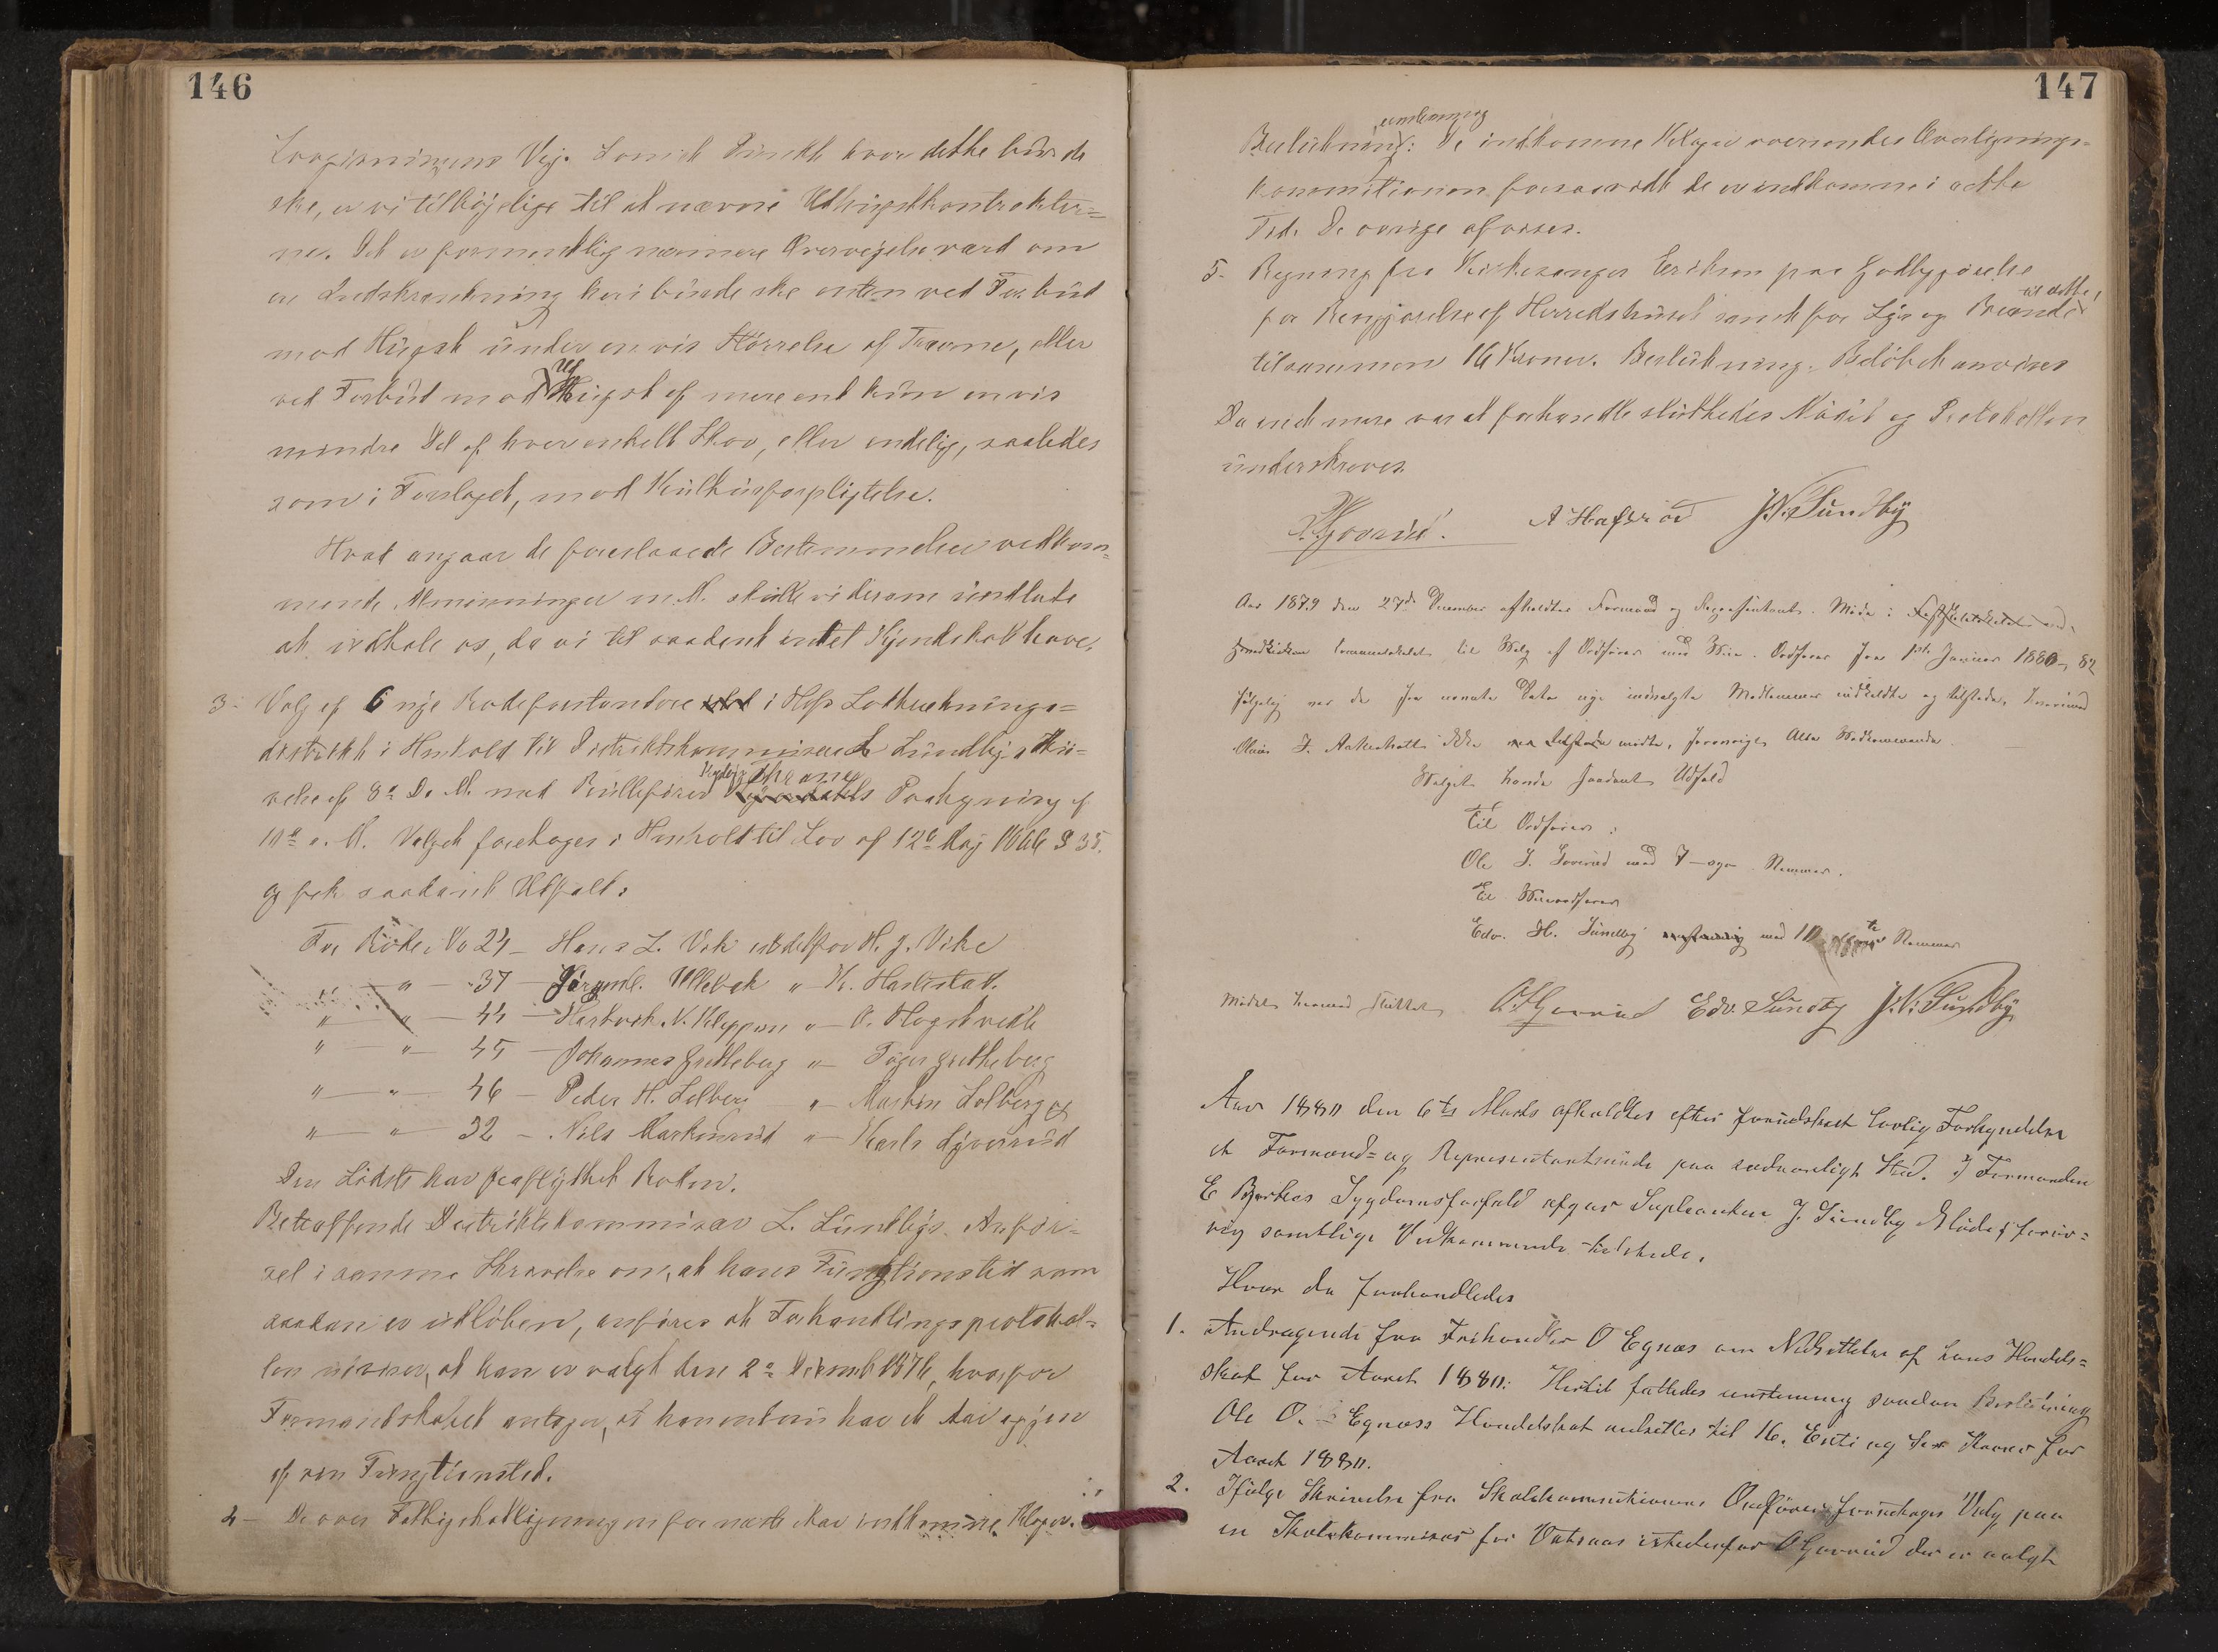 146
Lovgivningens Vej. Somet Punkt hvor dette burde
ske, er vi tilbøjelige til at nævne Udhugstkontrakter=
ne. Det er formentlig nærmere Overvejelse værd om
en Indskrænkning heri burde ske enten ved Forbud
mod Hugst under en vis Størrelse af Træerne, eller
ved Forbud mod Udhugst af mere end kun en vis
mindre Del af hver enkelt Skov, eller endelig, saaledes
som i Forslaget, mod Kulturforpligtelse.
Hvad angaar de foreslaaede Bestemmelser vedkom=
mende Almenninger m. M. skulle vi dersom undlade
at udtale os, da vi til saadant intet Kjendskab have.
3- Valg af 6 nye Rodeforstandere i Hofs Lodtræknings=
distrikt i Henhold til Distriktskommissær L. Lundbys Skri=
velse af 8de D. M. med Rullefører Thranes Paategning af
10de s. M. Valget foretages i Henhold til Lov af 12te Maj 1866 § 35.
og fik saadant Udfald:
For Rode No 24 – Hans L. Vik istedetfor H. J. Vike
" — " — 37 — Jørgen Ullebak " K. Harlestad.
" — " — 44 — N. Kleppen " O. Hogstvedt
" — " — 45 — Johannes Gretteberg " Gretteberg
" — " — 46 — Peder H. Solberg " Martin Solberg og
" — " — 32 — Nils " Karls
Den Sidste har fraflyttet Roden.
Betræffende Distriktskommissær L. Lundbys Anfør=
sel i samme Skrivelse om, at hans Funktionstid som
saadan er udløben, anføres at Forhandlingsprotokol=
len udviser, at han er valgt den 2de Decemb 1876, hvorfor
Formandskabet antager, at han endnu har et Aar igjen
af sin Funktionstid.
4- De over Fattigskatligningen for næste Aar indkomne Klager.
147
Beslutning: enstemmig De indkomne Klager oversendes Overlignings=
kommissionen forsaavidt de er indkomne i rette
Tid. De øvrige afvises.
5- Regning fra Kirkesanger Eriksen paa Godtgjørelse
for Rengjørelse af Herredshuset samt for Lys og Brænde til dette,
tilsammen 16 Kroner. Beslutning: Beløbet anvises
Da intet mere var at forhandle sluttedes Mødet og Protokollen
underskreves.
O. Goverud. A Hafsrød J. N. Sundby
Aar 1879 den 27de December afholdtes Formand og Repræsentant. Møde i
Communelokalet til Valg af Ordfører med Vice. Ordfører fra 1ste Januar 1880–82
følgelig var de fra nævnte Dato nye indvalgte Medlemmer indkaldte og tilstede,
Olaus J. ikke mødte, forøvrigt Alle Vedkommende
Valget havde saadant Udfald
Til Ordfører:
Ole J. Goverud med 7–syv Stemmer.
Til Viceordfører
Edv. H. Sundby med 10 ti Stemmer
Mødet hermed sluttet O. Goverud Edv. Sundby J. N. Sundby
Aar 1880 den 6te Marts afholdtes efter forudskeet lovlig Forkyndelse
et Formand= og Representantmøde paa sædvanligt Sted. I Formanden
E Bjerkes Sygdomsforfald afgav Supleanten J. Sundby Møde; forøv=
rig samtlige Vedkommende tilstede.
Hvor da forhandledes
1. Andragende fra Frihandler O Egnæs om Nedsættelse af hans Handels=
skat for Aaret 1880: Hertil fattedes enstemmig saadan Beslutning
Ole O. Egnæss Handelsskat nedsættes til 16. Seksti og Kroner for
Aaret 1880.
2. Ifølge Skrivelse fra Skolekommissionens Ordfører foretages Valg paa
en Skolekommisær for Vatsaas istedenfor O Goverud der er valgt